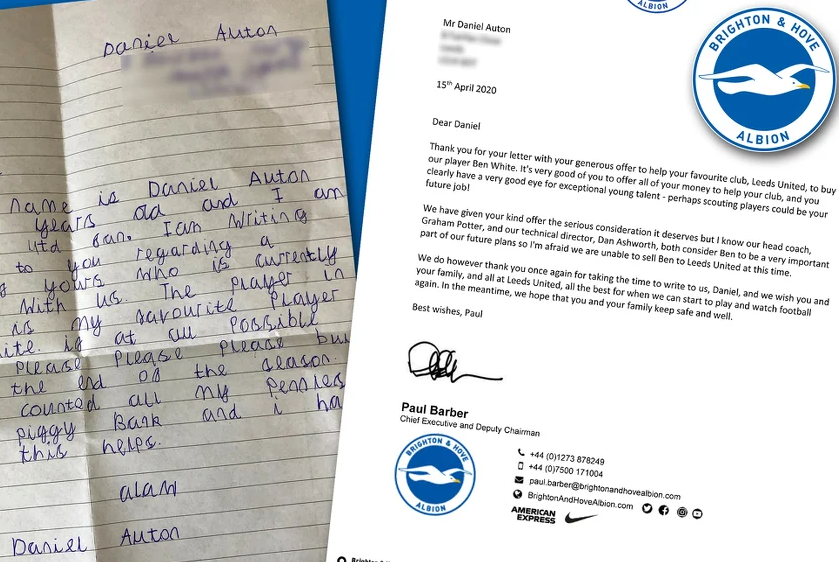 Daniel Auton
name is Daniel Auton
years old and I am
utd fan. I am writing
to you regarding a
yours who is currently
with us. The player in
is my favourite player
ite. if at all possible
please please please bu
the end of the season.
counted all my pennies
piggy Bank and i ha
this helps.
alan
Daniel Auton
ALBION
BRIGHTON & HOVE
ALBION
Mr Daniel Auton
Leeds
15th April 2020
Dear Daniel
Thank you for your letter with your generous offer to help your favourite club, Leeds United, to buy
our player Ben White. It's very good of you to offer all of your money to help your club, and you
clearly have a very good eye for exceptional young talent - perhaps scouting players could be your
future job!
We have given your kind offer the serious consideration it deserves but I know our head coach,
Graham Potter, and our technical director, Dan Ashworth, both consider Ben to be a very important
part of our future plans so I'm afraid we are unable to sell Ben to Leeds United at this time.
We do however thank you once again for taking the time to write to us, Daniel, and we wish you and
your family, and all at Leeds United, all the best for when we can start to play and watch football
again. In the meantime, we hope that you and your family keep safe and well.
Best wishes, Paul
Paul Barber
Chief Executive and Deputy Chairman
BRIGHTON & HOVE
ALBION
+44 (0)1273 878249
+44 (0)7500 171004
paul.barber@brightonandhovealbion.com
BrightonAndHoveAlbion.com
AMERICAN
EXPRESS